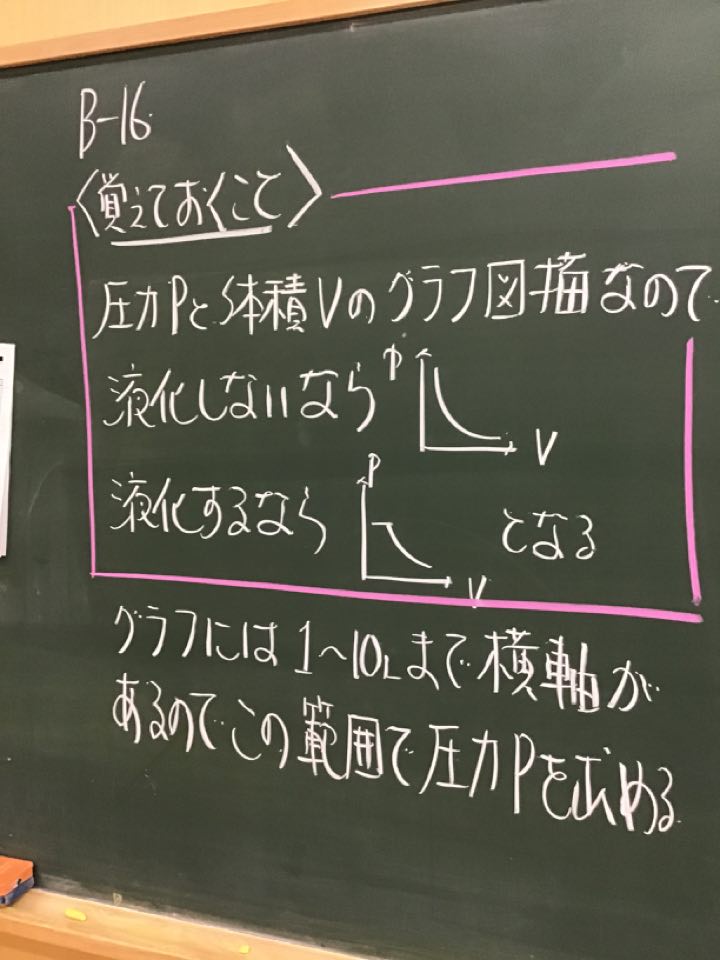 B-16
〈覚えておくこと〉
圧力Pと体積Vのグラフ図描なので
液化しないなら P V
液化するなら P V となる
グラフには 1~10Lまで横軸が
あるのでこの範囲で圧力Pを求める